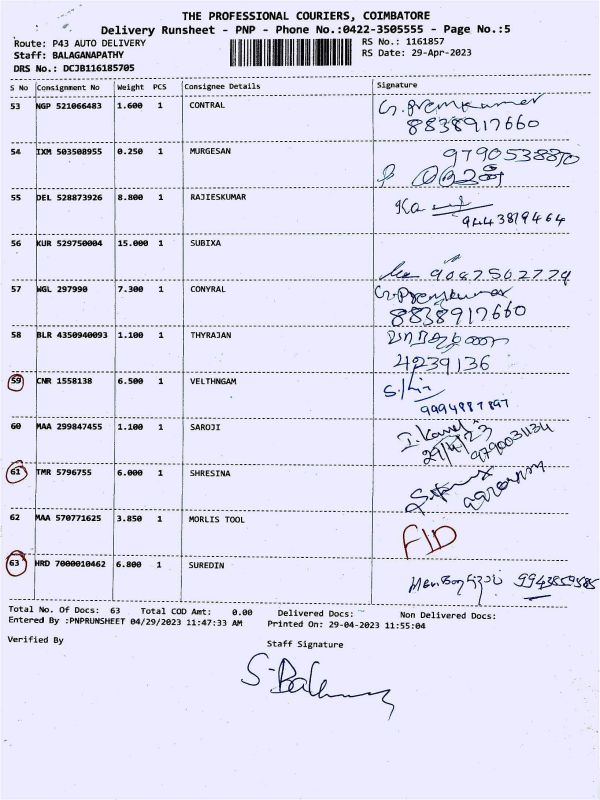 THE PROFESSIONAL COURIERS, COIMBATORE
Delivery Runsheet - PNP - Phone No.:0422-3505555 - Page No.:5
Route: P43 AUTO DELIVERY RS No.: 1161857
Staff: BALAGANAPATHY RS Date: 29-Apr-2023
DRS No.: DCJB116185705
S No Consignment No Weight PCS Consignee Details Signature
53 NGP 521066483 1.600 1 CONTRAL G. Premkumar
8838917660
54 IXM 503508955 0.250 1 MURGESAN
55 DEL 528873926 8.800 1 RAJIESKUMAR
9443819464
56 KUR 529750004 15.000 1 SUBIXA
57 WGL 297990 7.300 1 CONYRAL G. Premkumar
8838917660
58 BLR 4350940093 1.100 1 THYRAJAN
4239136
59 CNR 1558138 6.500 1 VELTHNGAM
60 MAA 299847455 1.100 1 SAROJI
29/4/23
61 TMR 5796755 6.000 1 SHRESINA
62 MAA 570771625 3.850 1 MORLIS TOOL
63 HRD 7000010462 6.800 1 SUREDIN
Total No. Of Docs: 63 Total COD Amt: 0.00 Delivered Docs: Non Delivered Docs:
Entered By :PNPRUNSHEET 04/29/2023 11:47:33 AM Printed On: 29-04-2023 11:55:04
Verified By Staff Signature